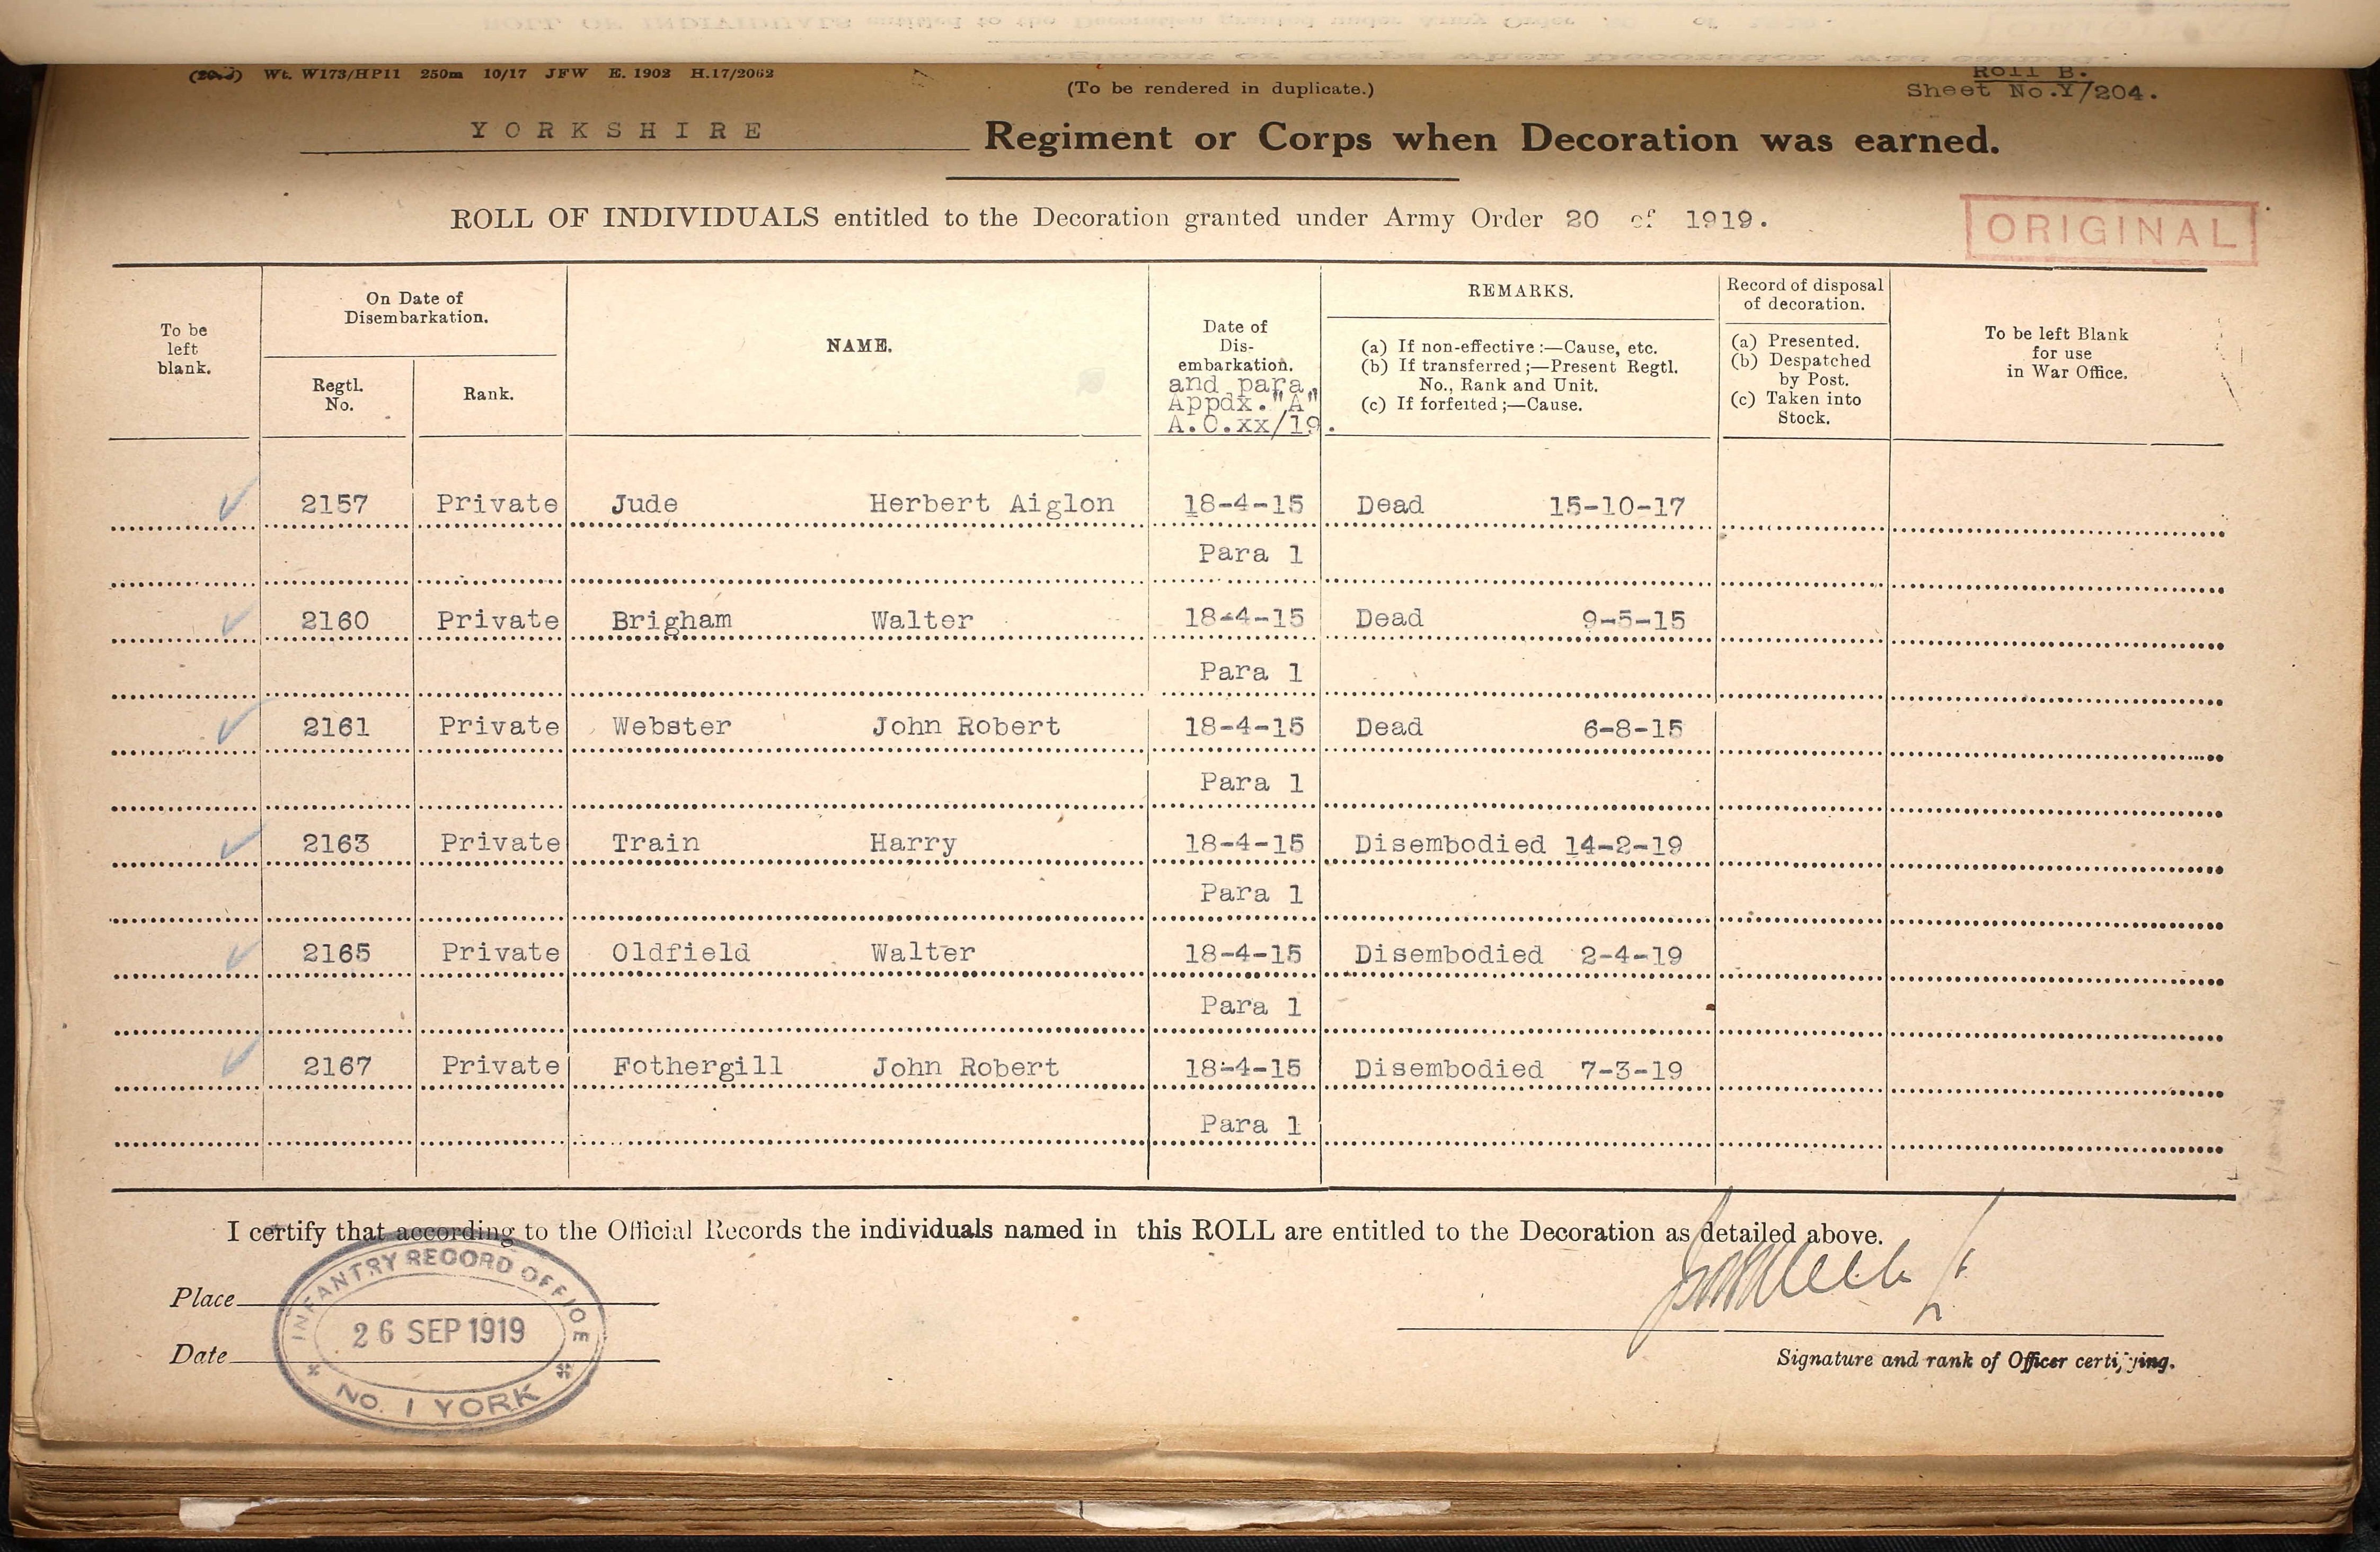 Wt. W173/HP11 250m 10/17 JFW E. 1902 H.17/2062
(To be rendered in duplicate.)
Roll B.
Sheet No.Y/204.
YORKSHIRE Regiment or Corps when Decoration was earned.
ROLL OF INDIVIDUALS entitled to the Decoration granted under Army Order 20 of 1919.
ORIGINAL
To be left blank.
On Date of Disembarkation.
Regtl. No.
Rank.
NAME.
Date of Dis-
embarkation.
and para.
Appdx."A"
A.O.xx/19.
REMARKS.
(a) If non-effective:—Cause, etc.
(b) If transferred;—Present Regtl.
No., Rank and Unit.
(c) If forfeited;—Cause.
Record of disposal
of decoration.
(a) Presented.
(b) Despatched
by Post.
(c) Taken into
Stock.
To be left Blank
for use
in War Office.
2157 Private Jude Herbert Aiglon 18-4-15 Dead 15-10-17
Para 1
2160 Private Brigham Walter 18-4-15 Dead 9-5-15
Para 1
2161 Private Webster John Robert 18-4-15 Dead 6-8-15
Para 1
2163 Private Train Harry 18-4-15 Disembodied 14-2-19
Para 1
2165 Private Oldfield Walter 18-4-15 Disembodied 2-4-19
Para 1
2167 Private Fothergill John Robert 18-4-15 Disembodied 7-3-19
Para 1
I certify that according to the Official Records the individuals named in this ROLL are entitled to the Decoration as detailed above.
Place
Date
INFANTRY RECORD OFFICE
26 SEP 1919
No. 1 YORK
Signature and rank of Officer certifying.